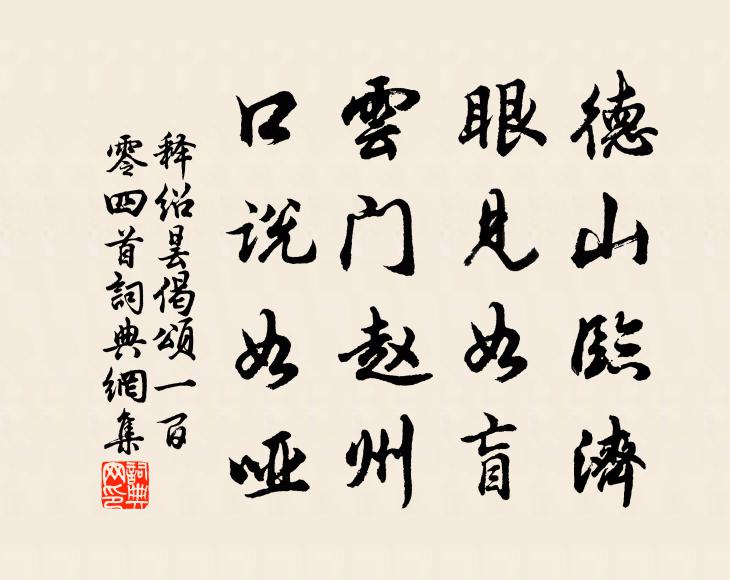 德山臨濟
眼見如盲
雲门赵州
口说如哑
釋紹曇偈頌一百
零四首詞典網集
詞典网印